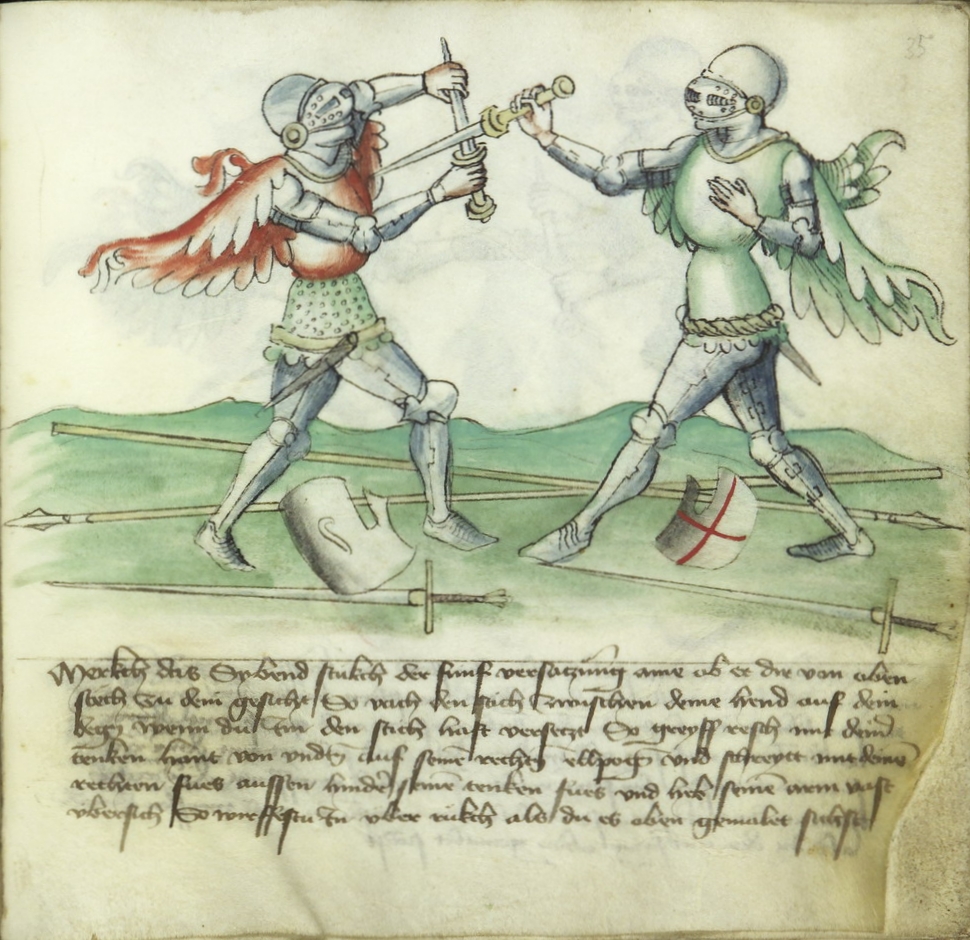 35
Merckh das Sybend stukch der fünf versatzung ame ob er dir von oben
stech zu dem gesicht So vach den stich zwischen deine hend auf dein
degn wenn du Im den stich hast versetzt So greyff resch mit deinē
tenken hant von undñ auf seinē rechtñ ellpogñ vnd schreytt mit deinē
rechten fues aussen hindē seinē tenken fues und heb seinē arm vast
vbersich So wirffestu In vber rukch als du es oben gemalet sichst